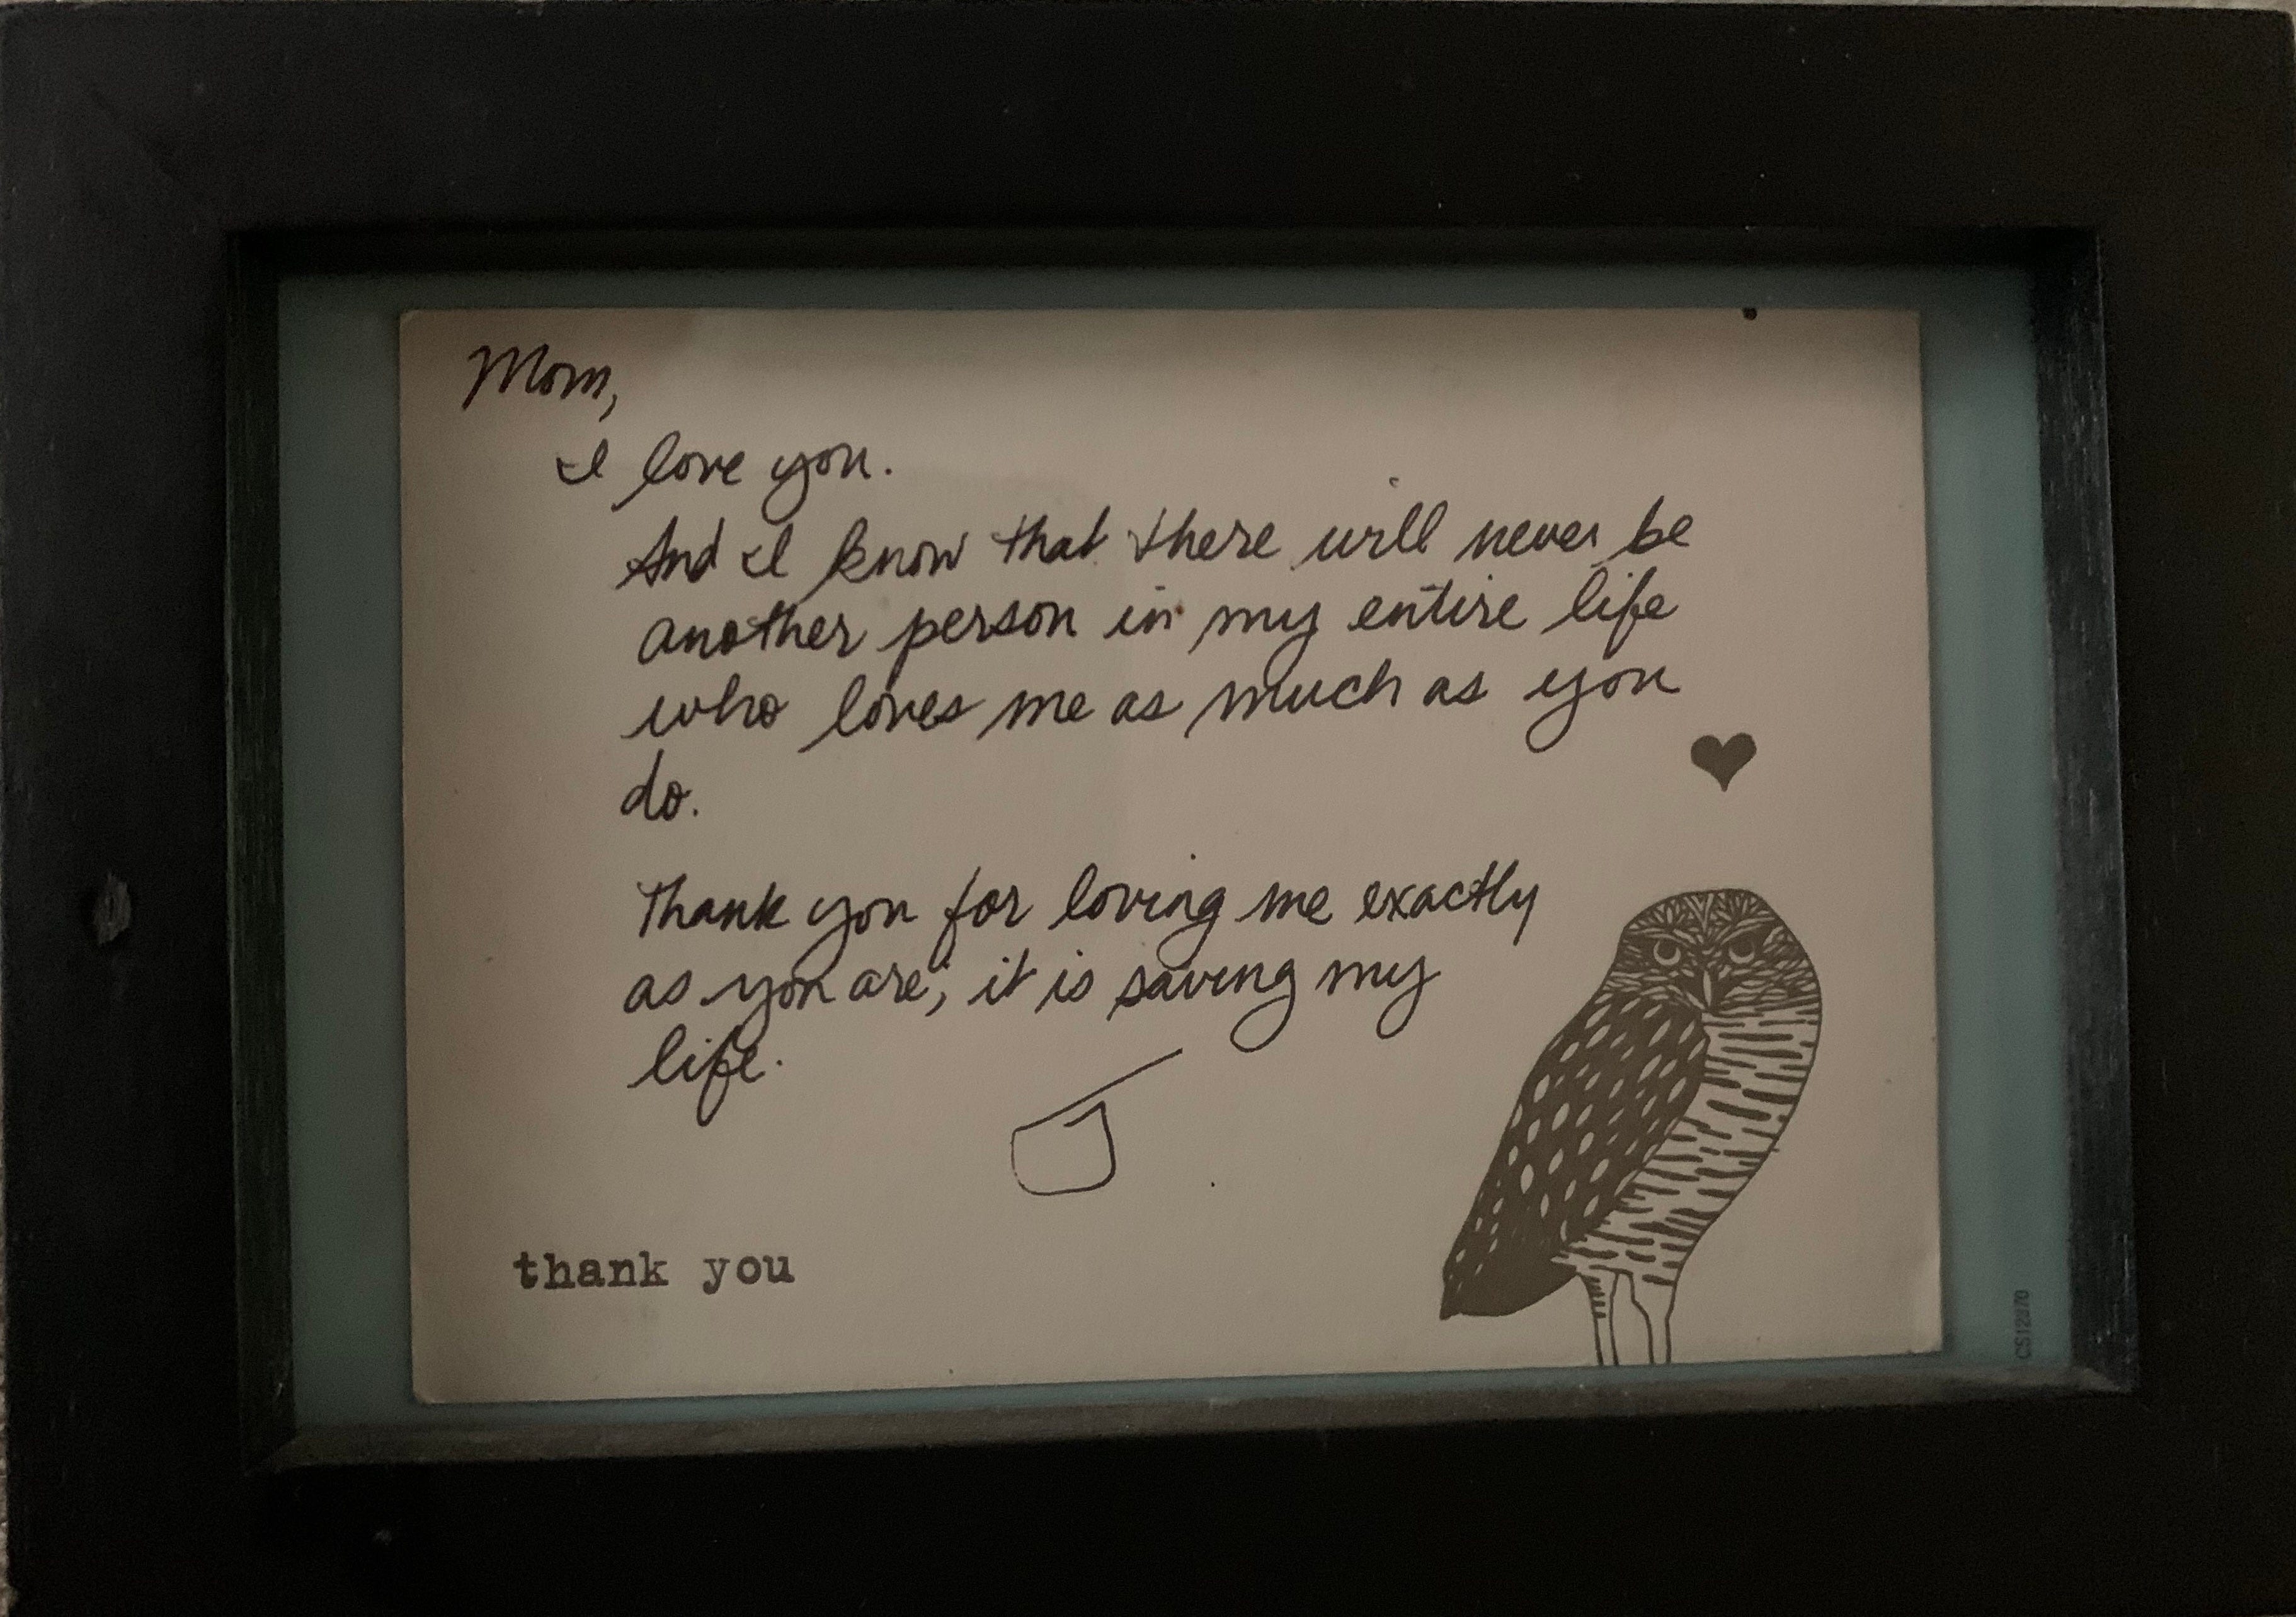 Mom,
I love you.
And I know that there will never be
another person in my entire life
who loves me as much as you
do.
Thank you for loving me exactly
as you are; it is saving my
life.
thank you